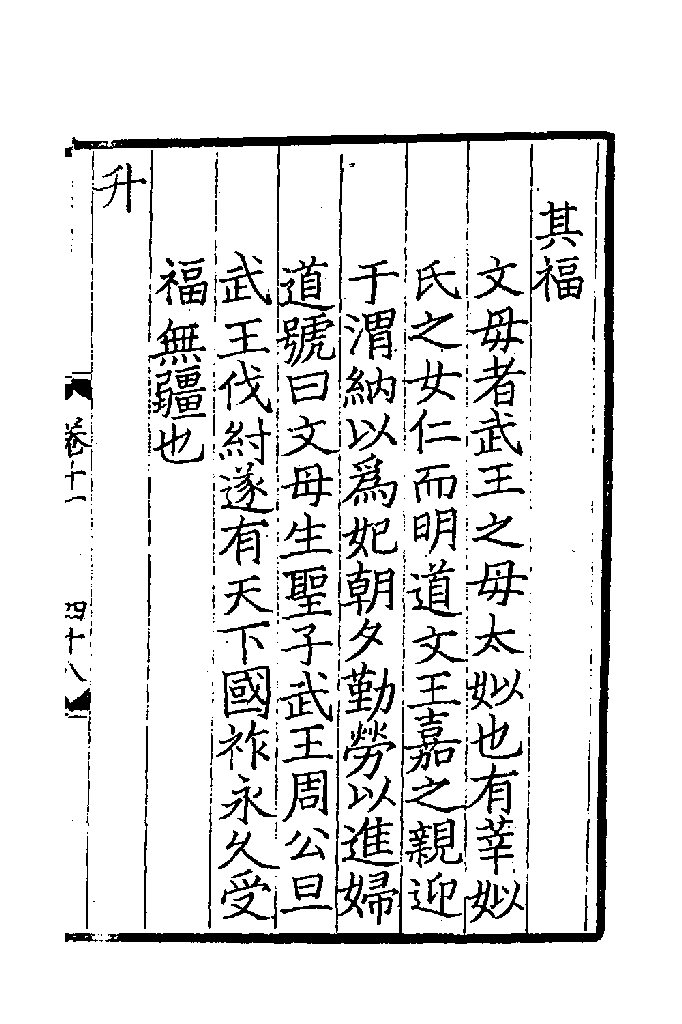 其福
文母者武王之母太姒也有莘姒
氏之女仁而明道文王嘉之親迎
于渭納以爲妃朝夕勤勞以進婦
道號曰文母生聖子武王周公旦
武王伐紂遂有天下國祚永久受
福無疆也
升
卷十一
四十八